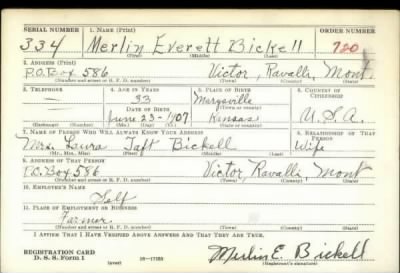 SERIAL NUMBER 1. NAME (Print) ORDER NUMBER
334 Merlin Everett Bickell 720
(First) (Middle) (Last)
2. ADDRESS (Print)
P.O. Box 586 Victor, Ravalli, Mont.
(Number and street or R. F. D. number) (Town) (County) (State)
3. TELEPHONE 4. AGE IN YEARS 5. PLACE OF BIRTH 6. COUNTRY OF CITIZENSHIP
— 33 Marysville
DATE OF BIRTH (Town or county)
June 23-1907 Kansas U.S.A.
(Mo.) (Day) (Yr.) (State or country)
7. NAME OF PERSON WHO WILL ALWAYS KNOW YOUR ADDRESS 8. RELATIONSHIP OF THAT PERSON
Mrs. Laura Taft Bickell Wife
(Mr., Mrs., Miss) (First) (Middle) (Last)
9. ADDRESS OF THAT PERSON
P.O. Box 586 Victor, Ravalli, Mont
(Number and street or R. F. D. number) (Town) (County) (State)
10. EMPLOYER'S NAME
Self
11. PLACE OF EMPLOYMENT OR BUSINESS
Farmer
(Number and street or R. F. D. number) (Town) (County) (State)
I AFFIRM THAT I HAVE VERIFIED ABOVE ANSWERS AND THAT THEY ARE TRUE.
REGISTRATION CARD
D. S. S. Form 1 (over) Merlin E. Bickell
(Registrant's signature)